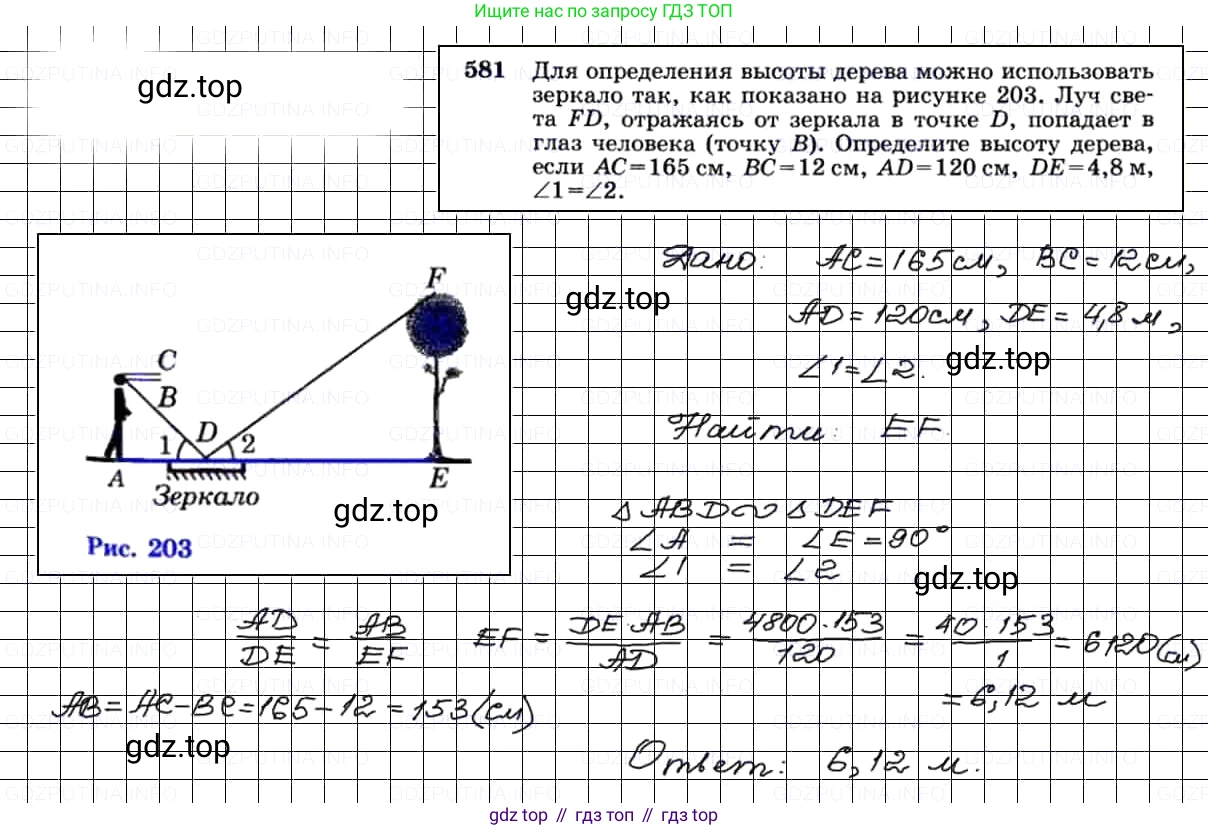 Ищите нас по запросу ГДЗ ТОП
gdz.top
581 Для определения высоты дерева можно использовать
зеркало так, как показано на рисунке 203. Луч све-
та FD, отражаясь от зеркала в точке D, попадает в
глаз человека (точку B). Определите высоту дерева,
если AC=165 см, BC=12 см, AD=120 см, DE=4,8 м,
∠1=∠2.
F
C
B
D
1
2
A
E
Зеркало
gdz.top
Рис. 203
Дано: AC=165 см, BC=12 см,
gdz.top
AD=120 см, DE=4,8 м,
∠1=∠2.
gdz.top
Найти: EF.
△ABD∾△DEF
∠A = ∠E=90°
∠1 = ∠2
gdz.top
AD/DE = AB/EF EF = DE·AB/AD = 4800·153/120 = 40·153/1 = 6120(см)
= 6,12 м
AB=AC-BC=165-12=153(см)
gdz.top
Ответ: 6,12 м.
gdz top // гдз топ // гдз top
GDZPUTINA.INFO